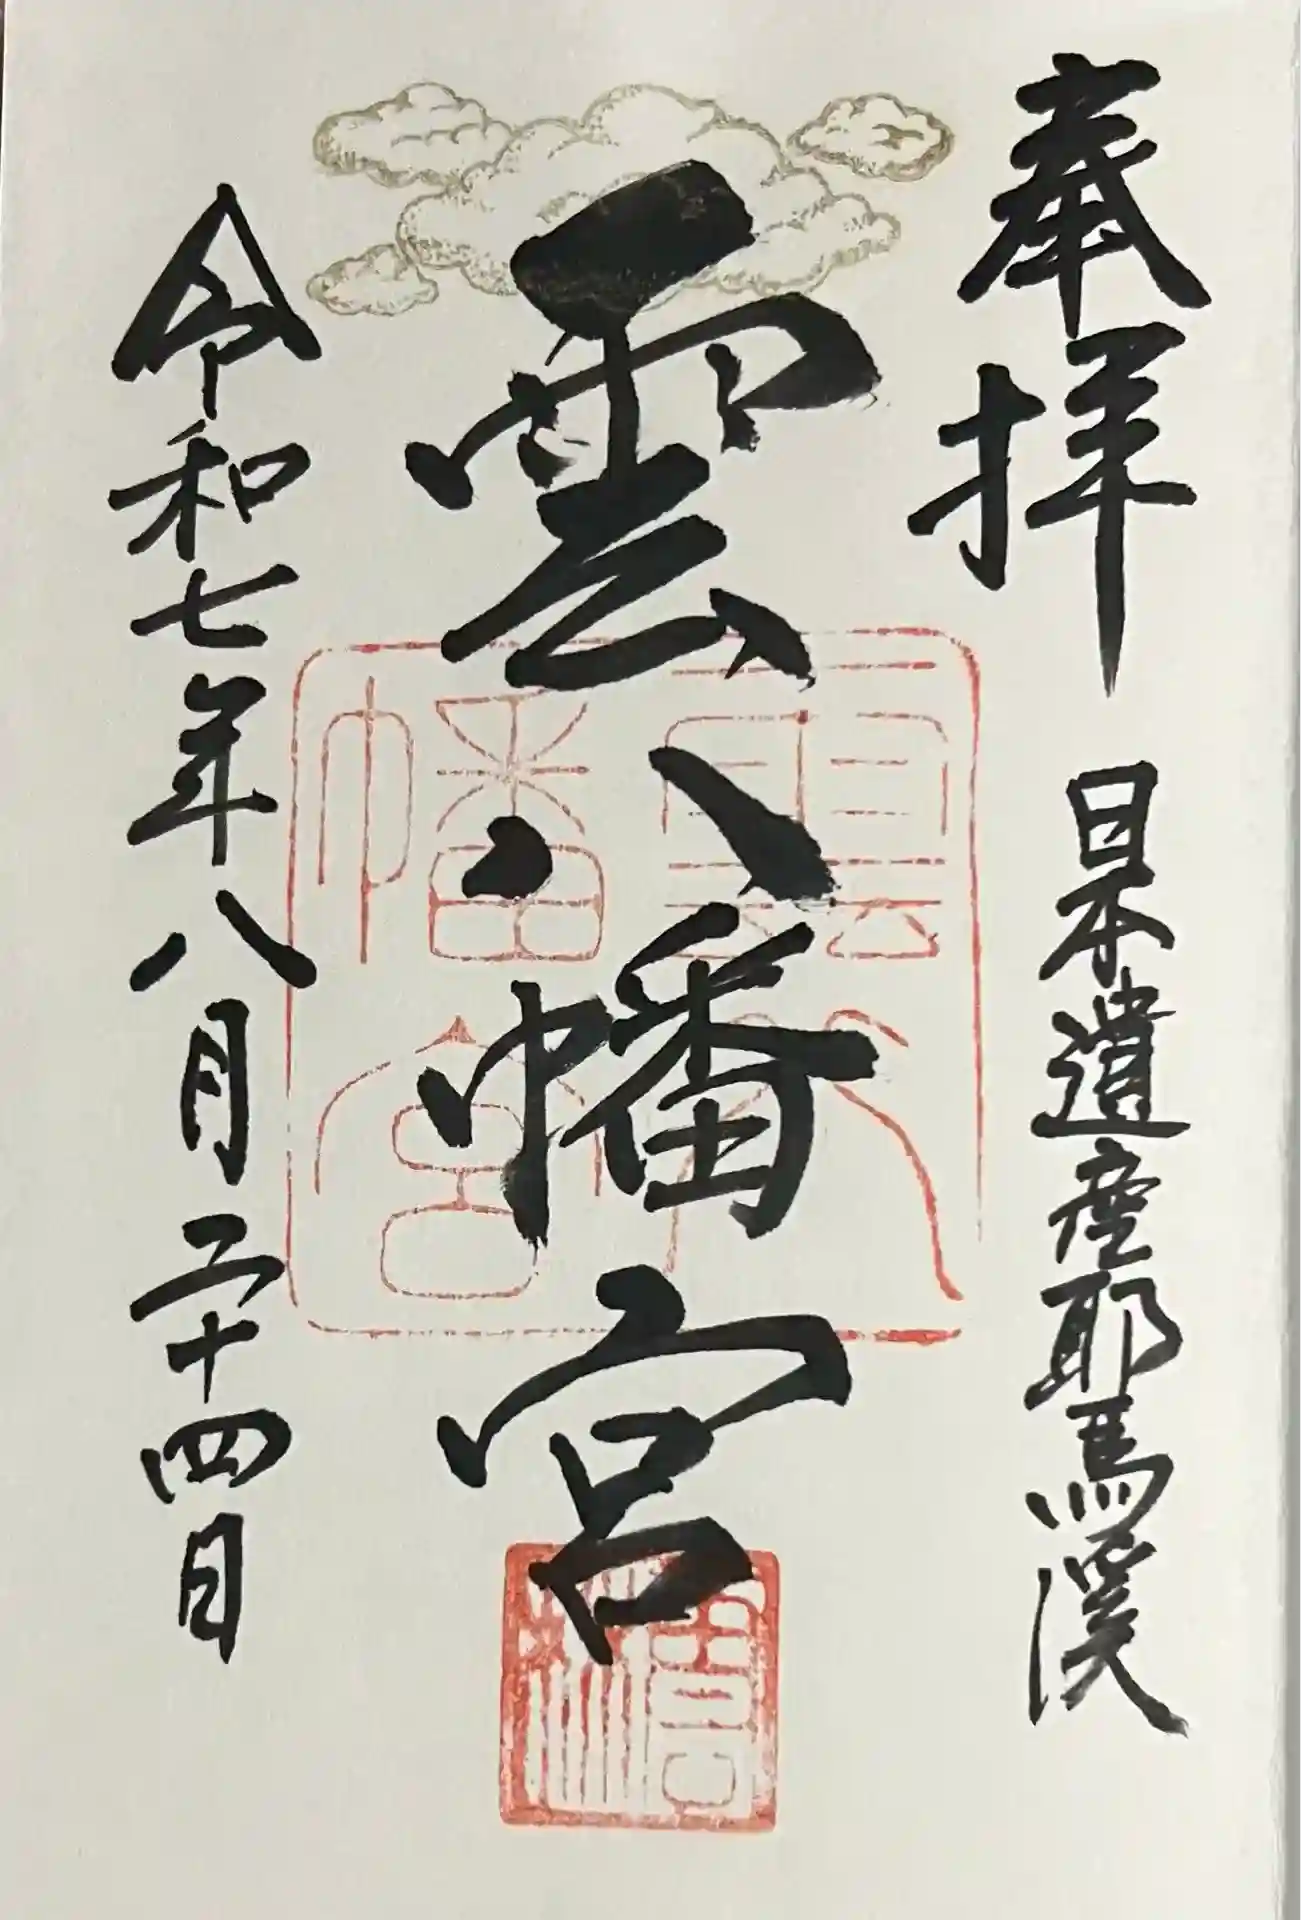 奉拝
日本遺産耶馬溪
雲八幡宮
令和七年八月二十四日
雲八
幡宮